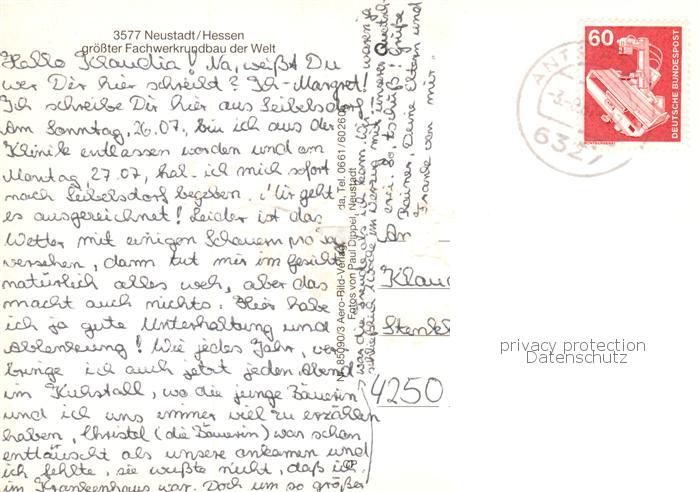 3577 Neustadt/Hessen
größter Fachwerkrundbau der Welt
Hallo Klaudia! Na, weißt Du
wer Dir hier schreibt? Ich - Margret!
Ich schreibe Dir hier aus Seibelsdorf.
Am Sonntag, 26.07., bin ich aus der
Klinik entlassen worden und am
Montag 27.07, hab ich mich sofort
nach Seibelsdorf begeben. Mir geht
es ausgezeichnet! Leider ist das
Wetter mit einigen Schauern pro Tag
versehen, dann tut mir im Gesicht
natürlich alles weh, aber das
macht auch nichts. Hier habe
ich ja gute Unterhaltung und
Ablenkung! Wie jedes Jahr, ver-
bringe ich auch jetzt jeden Abend
im Kuhstall, wo die junge Bäuerin
und ich uns immer viel zu erzählen
haben. Christel (die Bäuerin) war schon
enttäuscht als unsere ankamen und
ich fehlte, sie wußte nicht, daß ich
im Krankenhaus war. Doch um so größer
war die Freude als ich kam. Wir waren ja
schließlich 1 Woche im Verzug mit unserer
So, tschüß! Grüße
Rainer, Deine Eltern und
Franke von mir.
Nr. 85090/3 Aero-Bild-Verlag
da, Tel. 0661/602
Fotos von Paul Dippel, Neustadt
An
Klau
4250
60
DEUTSCHE BUNDESPOST
RÖNTGENGERÄT
ANT
6327
privacy protection
Datenschutz